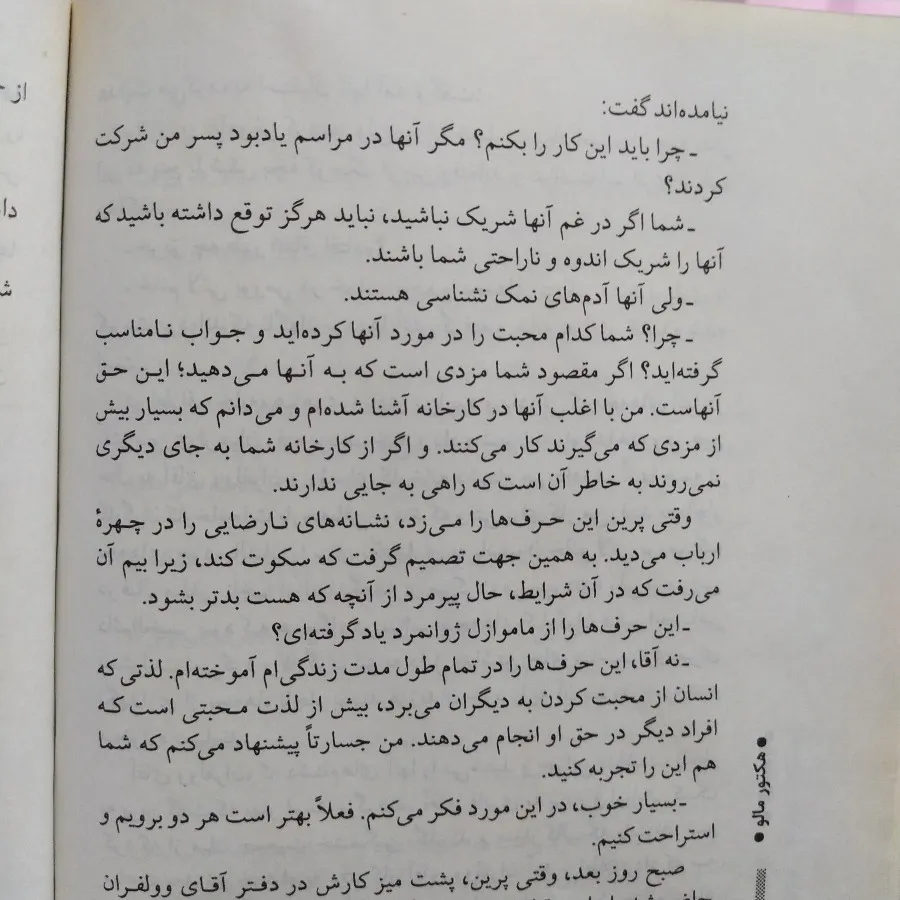 نیامده‌اند گفت:
ـ چرا باید این کار را بکنم؟ مگر آنها در مراسم یادبود پسر من شرکت
کردند؟
ـ شما اگر در غم آنها شریک نباشید، نباید هرگز توقع داشته باشید که
آنها را شریک اندوه و ناراحتی شما باشند.
ـ ولی آنها آدم‌های نمک نشناسی هستند.
ـ چرا؟ شما کدام محبت را در مورد آنها کرده‌اید و جواب نامناسب
گرفته‌اید؟ اگر مقصود شما مزدی است که به آنها می‌دهید؛ این حق
آنهاست. من با اغلب آنها در کارخانه آشنا شده‌ام و می‌دانم که بسیار بیش
از مزدی که می‌گیرند کار می‌کنند. و اگر از کارخانه شما به جای دیگری
نمی‌روند به خاطر آن است که راهی به جایی ندارند.
وقتی پرین این حرف‌ها را می‌زد، نشانه‌های نارضایی را در چهرهٔ
ارباب می‌دید. به همین جهت تصمیم گرفت که سکوت کند، زیرا بیم آن
می‌رفت که در آن شرایط، حال پیرمرد از آنچه که هست بدتر بشود.
ـ این حرف‌ها را از ماموازل ژوانمرد یاد گرفته‌ای؟
ـ نه آقا، این حرف‌ها را در تمام طول مدت زندگی‌ام آموخته‌ام. لذتی که
انسان از محبت کردن به دیگران می‌برد، بیش از لذت محبتی است که
افراد دیگر در حق او انجام می‌دهند. من جسارتاً پیشنهاد می‌کنم که شما
هم این را تجربه کنید.
ـ بسیار خوب، در این مورد فکر می‌کنم. فعلاً بهتر است هر دو برویم و
استراحت کنیم.
صبح روز بعد، وقتی پرین، پشت میز کارش در دفتر آقای وولفران
● هکتور مالو ●
از